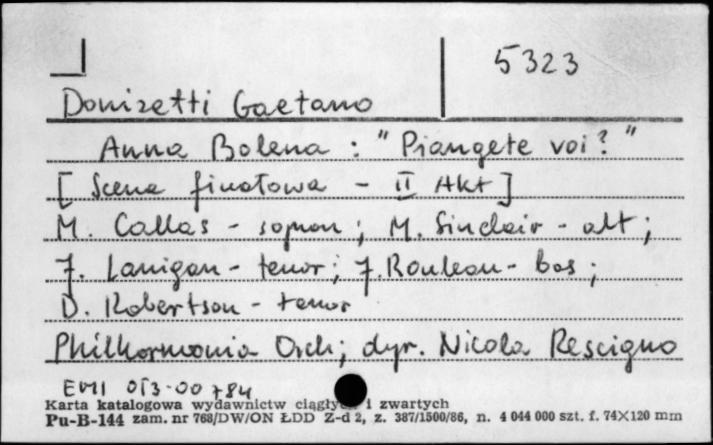 5323
Donizetti Gaetano
Anna Bolena : "Piangete voi?"
[Scena finałowa - II Akt]
M. Callas - sopran; M. Sinclair - alt;
J. Lanigan - tenor; J. Rouleau - bas;
D. Robertson - tenor
Philharmonia Orch; dyr. Nicola Rescigno
EMI 013-00 784
Karta katalogowa wydawnictw ciągłych i zwartych
Pu-B-144 zam. nr 768/DW/ON ŁDD Z-d 2, z. 387/1500/86, n. 4 044 000 szt. f. 74×120 mm